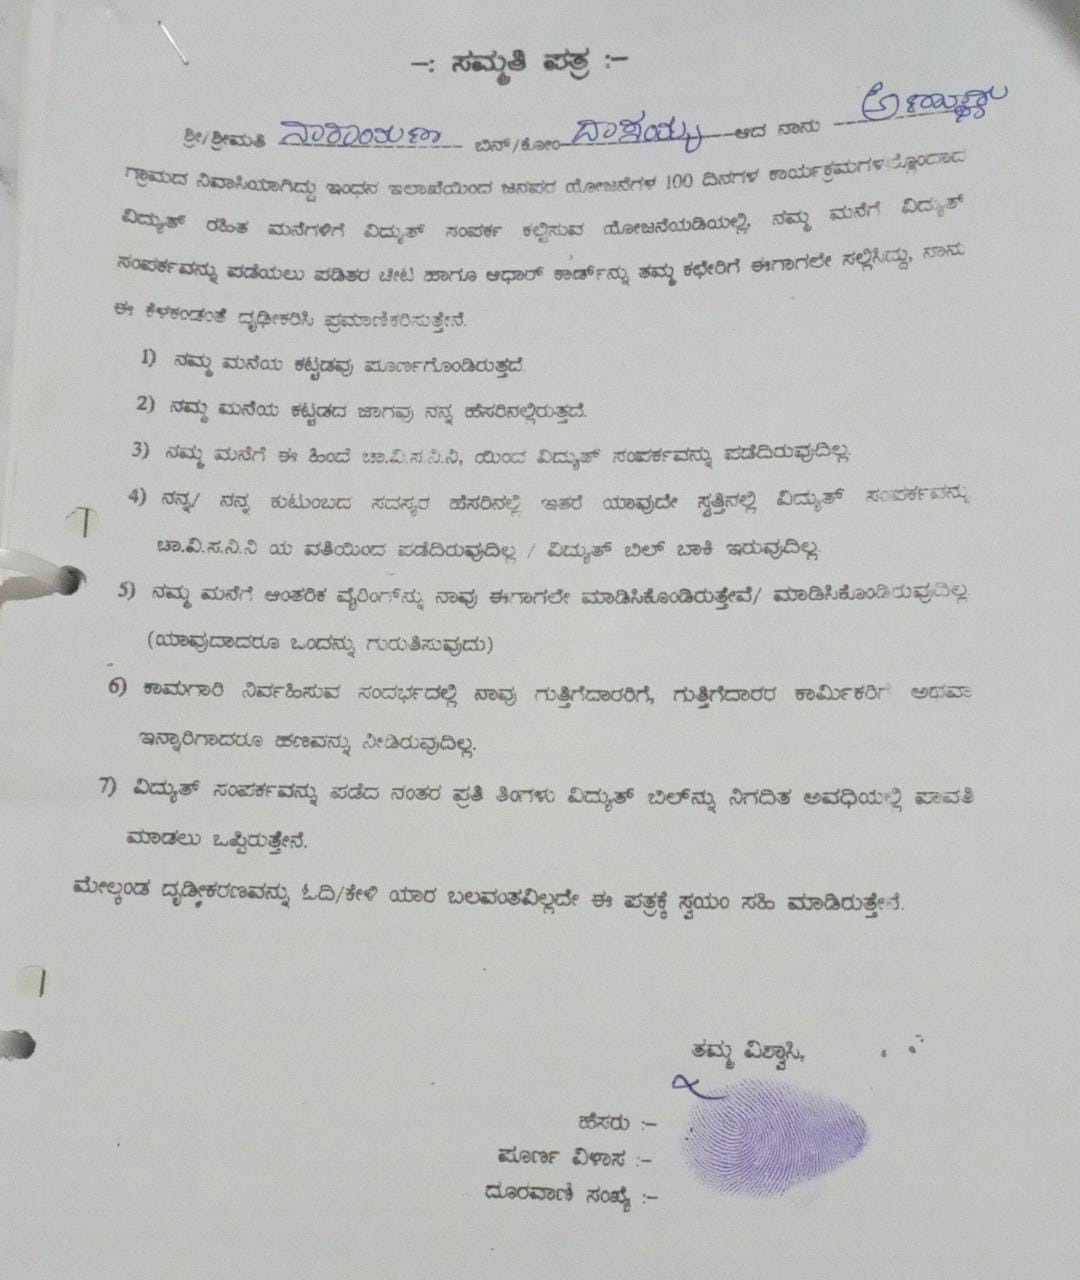 -: ಸಮ್ಮತಿ ಪತ್ರ :-
ಶ್ರೀ/ಶ್ರೀಮತಿ ನಾರಾಯಣ ಬಿನ್/ಕೋಂ ದಾಸಯ್ಯ ಆದ ನಾನು
ಗ್ರಾಮದ ನಿವಾಸಿಯಾಗಿದ್ದು ಇಂಧನ ಇಲಾಖೆಯಿಂದ ಜನಪರ ಯೋಜನೆಗಳ 100 ದಿನಗಳ ಕಾರ್ಯಕ್ರಮಗಳಲ್ಲೊಂದಾದ
ವಿದ್ಯುತ್ ರಹಿತ ಮನೆಗಳಿಗೆ ವಿದ್ಯುತ್ ಸಂಪರ್ಕ ಕಲ್ಪಿಸುವ ಯೋಜನೆಯಡಿಯಲ್ಲಿ, ನಮ್ಮ ಮನೆಗೆ ವಿದ್ಯುತ್
ಸಂಪರ್ಕವನ್ನು ಪಡೆಯಲು ಪಡಿತರ ಚೀಟಿ ಹಾಗೂ ಆಧಾರ್ ಕಾರ್ಡ್‌ನ್ನು ತಮ್ಮ ಕಛೇರಿಗೆ ಈಗಾಗಲೇ ಸಲ್ಲಿಸಿದ್ದು, ನಾನು
ಈ ಕೆಳಕಂಡಂತೆ ದೃಢೀಕರಿಸಿ ಪ್ರಮಾಣಿಕರಿಸುತ್ತೇನೆ.
1) ನಮ್ಮ ಮನೆಯ ಕಟ್ಟಡವು ಪೂರ್ಣಗೊಂಡಿರುತ್ತದೆ.
2) ನಮ್ಮ ಮನೆಯ ಕಟ್ಟಡದ ಜಾಗವು ನನ್ನ ಹೆಸರಿನಲ್ಲಿರುತ್ತದೆ.
3) ನಮ್ಮ ಮನೆಗೆ ಈ ಹಿಂದೆ ಚಾ.ವಿ.ಸ.ನಿ.ನಿ, ಯಿಂದ ವಿದ್ಯುತ್ ಸಂಪರ್ಕವನ್ನು ಪಡೆದಿರುವುದಿಲ್ಲ.
4) ನನ್ನ/ ನನ್ನ ಕುಟುಂಬದ ಸದಸ್ಯರ ಹೆಸರಿನಲ್ಲಿ ಇತರೆ ಯಾವುದೇ ಸ್ವತ್ತಿನಲ್ಲಿ ವಿದ್ಯುತ್ ಸಂಪರ್ಕವನ್ನು
ಚಾ.ವಿ.ಸ.ನಿ.ನಿ ಯ ವತಿಯಿಂದ ಪಡೆದಿರುವುದಿಲ್ಲ / ವಿದ್ಯುತ್ ಬಿಲ್ ಬಾಕಿ ಇರುವುದಿಲ್ಲ.
5) ನಮ್ಮ ಮನೆಗೆ ಆಂತರಿಕ ವೈರಿಂಗ್‌ನ್ನು ನಾವು ಈಗಾಗಲೇ ಮಾಡಿಸಿಕೊಂಡಿರುತ್ತೇವೆ/ ಮಾಡಿಸಿಕೊಂಡಿರುವುದಿಲ್ಲ
(ಯಾವುದಾದರೂ ಒಂದನ್ನು ಗುರುತಿಸುವುದು)
6) ಕಾಮಗಾರಿ ನಿರ್ವಹಿಸುವ ಸಂದರ್ಭದಲ್ಲಿ ನಾವು ಗುತ್ತಿಗೆದಾರರಿಗೆ, ಗುತ್ತಿಗೆದಾರರ ಕಾರ್ಮಿಕರಿಗೆ ಅಥವಾ
ಇನ್ನಾರಿಗಾದರೂ ಹಣವನ್ನು ನೀಡಿರುವುದಿಲ್ಲ.
7) ವಿದ್ಯುತ್ ಸಂಪರ್ಕವನ್ನು ಪಡೆದ ನಂತರ ಪ್ರತಿ ತಿಂಗಳು ವಿದ್ಯುತ್ ಬಿಲ್‌ನ್ನು ನಿಗದಿತ ಅವಧಿಯಲ್ಲಿ ಪಾವತಿ
ಮಾಡಲು ಒಪ್ಪಿರುತ್ತೇನೆ.
ಮೇಲ್ಕಂಡ ದೃಢೀಕರಣವನ್ನು ಓದಿ/ಕೇಳಿ ಯಾರ ಬಲವಂತವಿಲ್ಲದೇ ಈ ಪತ್ರಕ್ಕೆ ಸ್ವಯಂ ಸಹಿ ಮಾಡಿರುತ್ತೇನೆ.
ತಮ್ಮ ವಿಶ್ವಾಸಿ,
ಹೆಸರು :-
ಪೂರ್ಣ ವಿಳಾಸ :-
ದೂರವಾಣಿ ಸಂಖ್ಯೆ :-